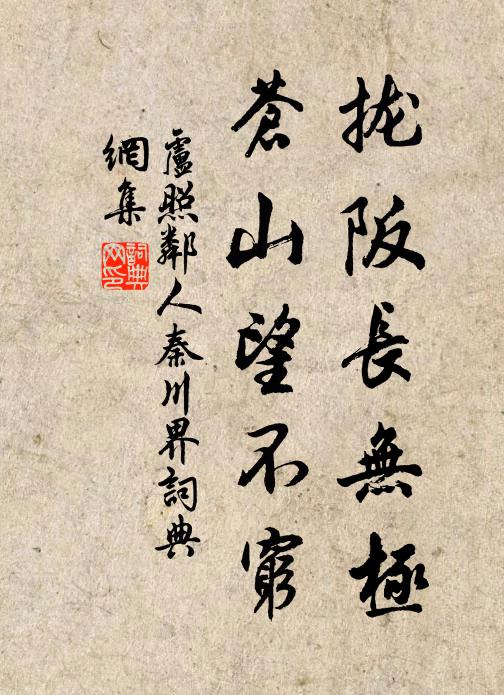 拢阪長無極
蒼山望不窮
盧照鄰人秦川界詞典
網集
詞典网印